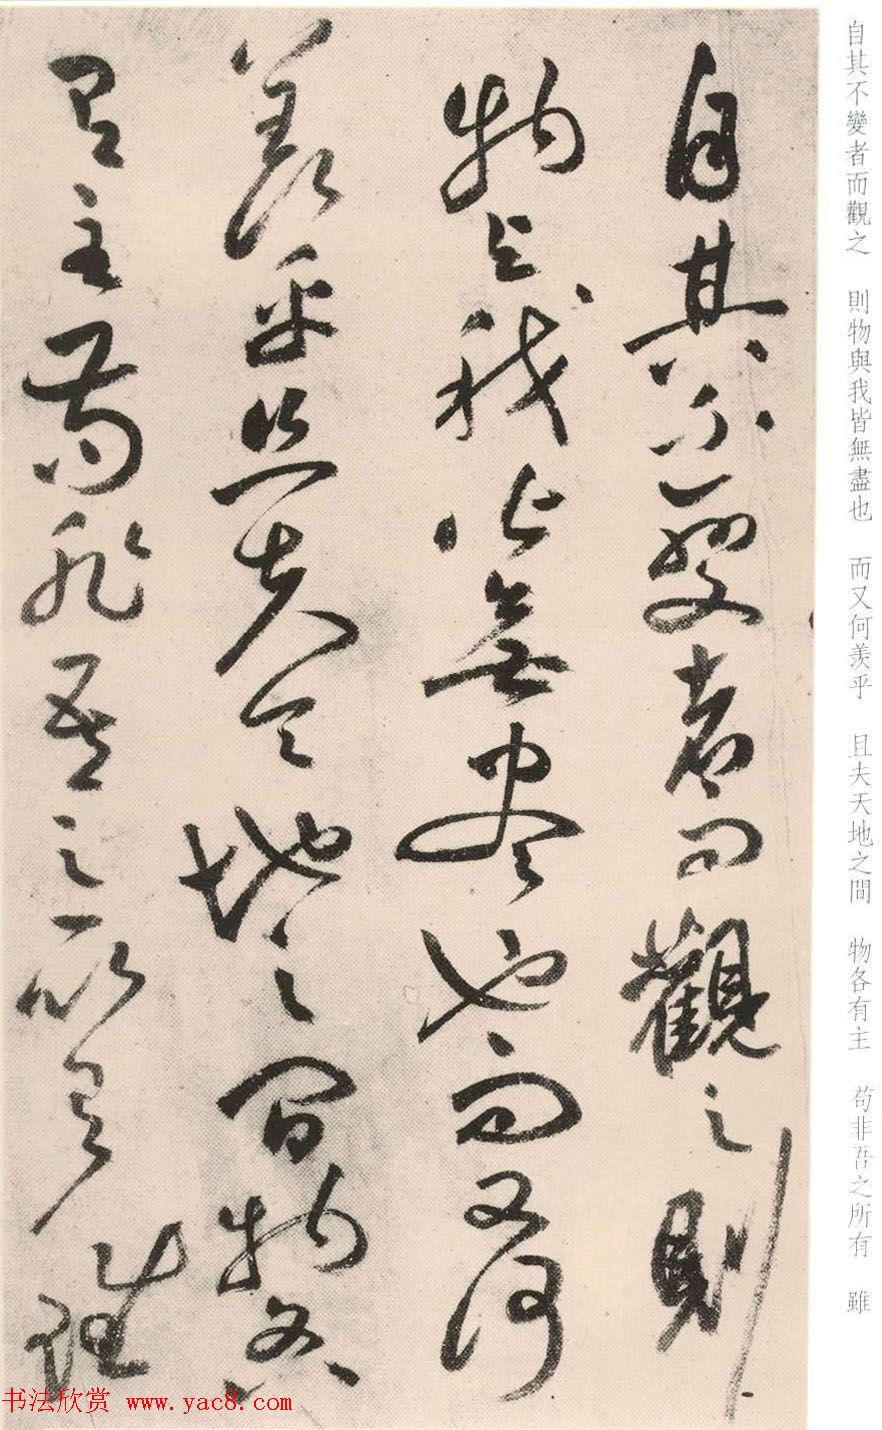 自其不變者而觀之 則物與我皆無盡也 而又何羨乎 且夫天地之間 物各有主 苟非吾之所有 雖
自其不變者而觀之則
物與我皆無盡也而又何
羨乎且夫天地之間物各
有主苟非吾之所有雖
书法欣赏 www.yac8.com